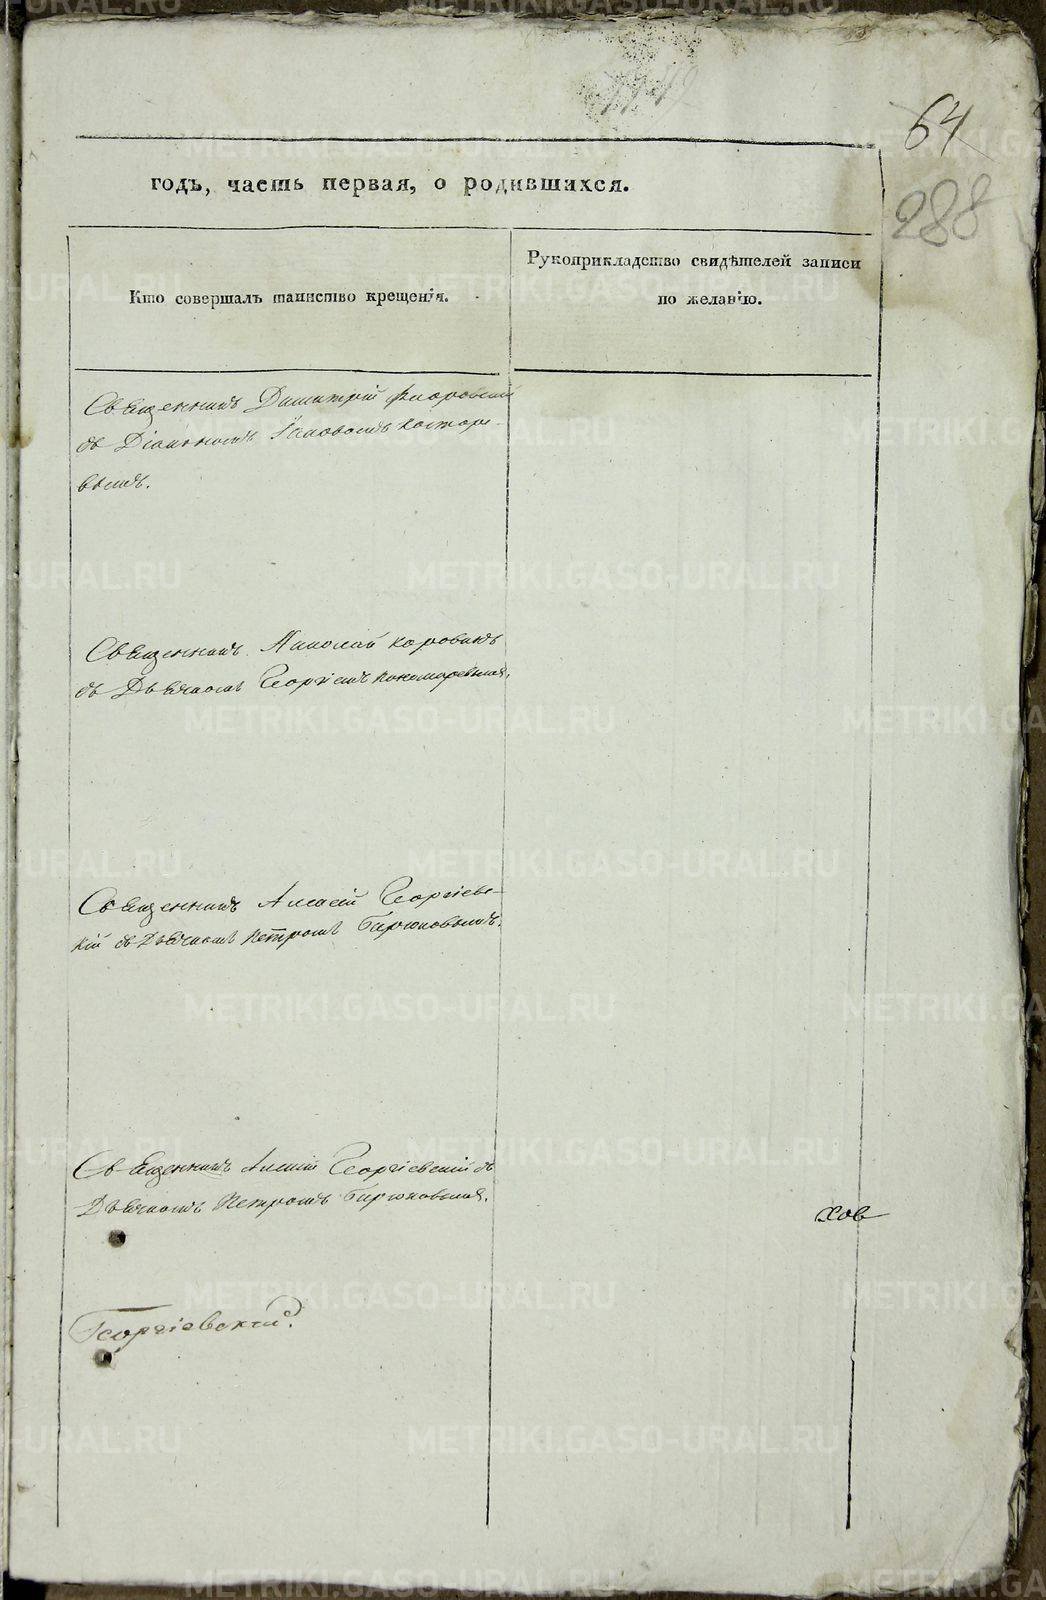 64
288
годъ, часть первая, о родившихся.
Кто совершалъ таинство крещенія.
Рукоприкладство свидѣтелей записи
по желанію.
Священникъ Димитрій Флоровскій
съ Діакономъ Іаковомъ Косторе-
вымъ.
Священникъ Николай Коровинъ
съ Дьячкомъ Георгіемъ Пономаревымъ.
Священникъ Алексій Георгіевс-
кій съ Дьячкомъ Петромъ Бирюковымъ.
Священникъ Алексій Георгіевскій съ
Дьячкомъ Петромъ Бирюковымъ.
ховъ
Георгіевскій.
METRIKI.GASO-URAL.RU